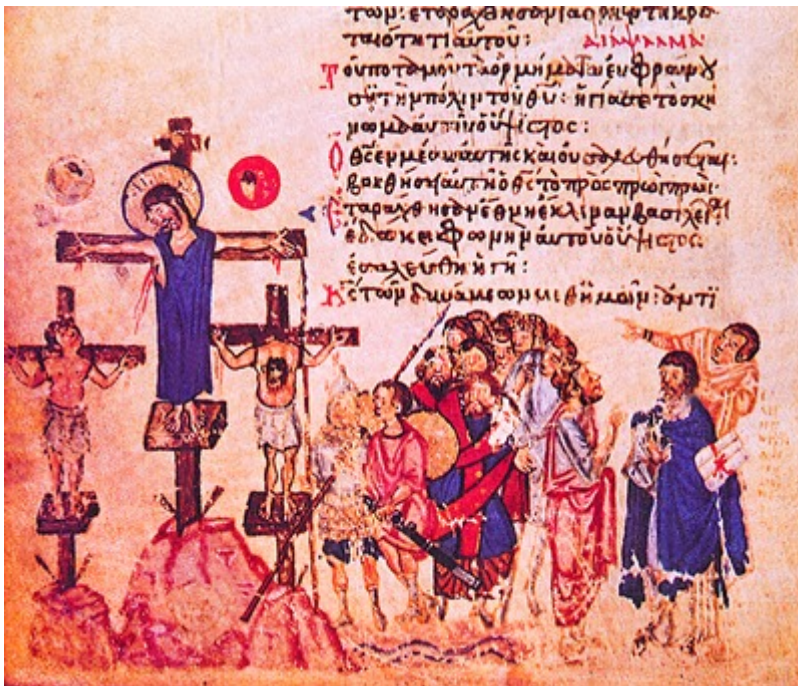 των: εταραχθησαν τα ορη εν τη κρα
ταιοτητι αυτου: διαψαλμα
Του ποταμου τα ορμηματα ευφραινου
σι την πολιν του θυ: ηγιασε το σκη
νωμα αυτου ο υψιστος:
Ο θς εν μεσω αυτης και ου σαλευθησεται:
βοηθησει αυτη ο θς το προς πρωι πρωι·
Εταραχθησαν εθνη εκλιναν βασιλειαι
εδωκε φωνην αυτου ο υψιστος
εσαλευθη η γη:
Κς των δυναμεων μεθ ημων: αντι